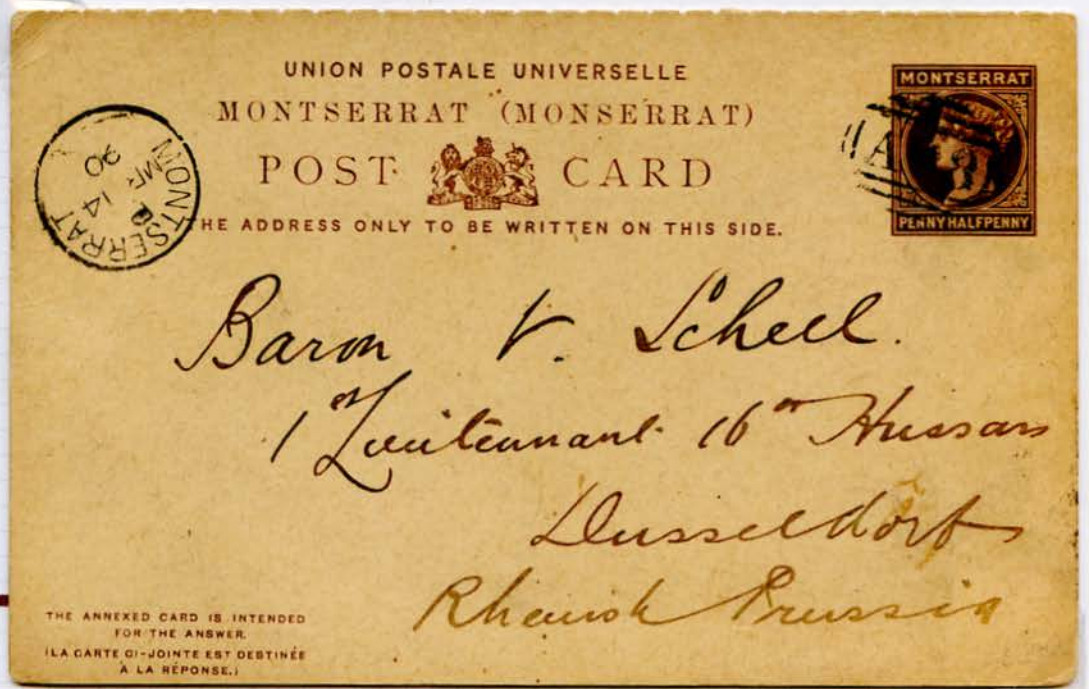 UNION POSTALE UNIVERSELLE
MONTSERRAT (MONSERRAT)
POST CARD
HE ADDRESS ONLY TO BE WRITTEN ON THIS SIDE.
MONTSERRAT
PENNY HALFPENNY
A
MONTSERRAT
MR 14
90
Baron V. Scheel.
1st Lieutennant 16th Hussars
Dusseldorf
Rhenish Prussia
THE ANNEXED CARD IS INTENDED
FOR THE ANSWER.
(LA CARTE CI-JOINTE EST DESTINÉE
À LA RÉPONSE.)